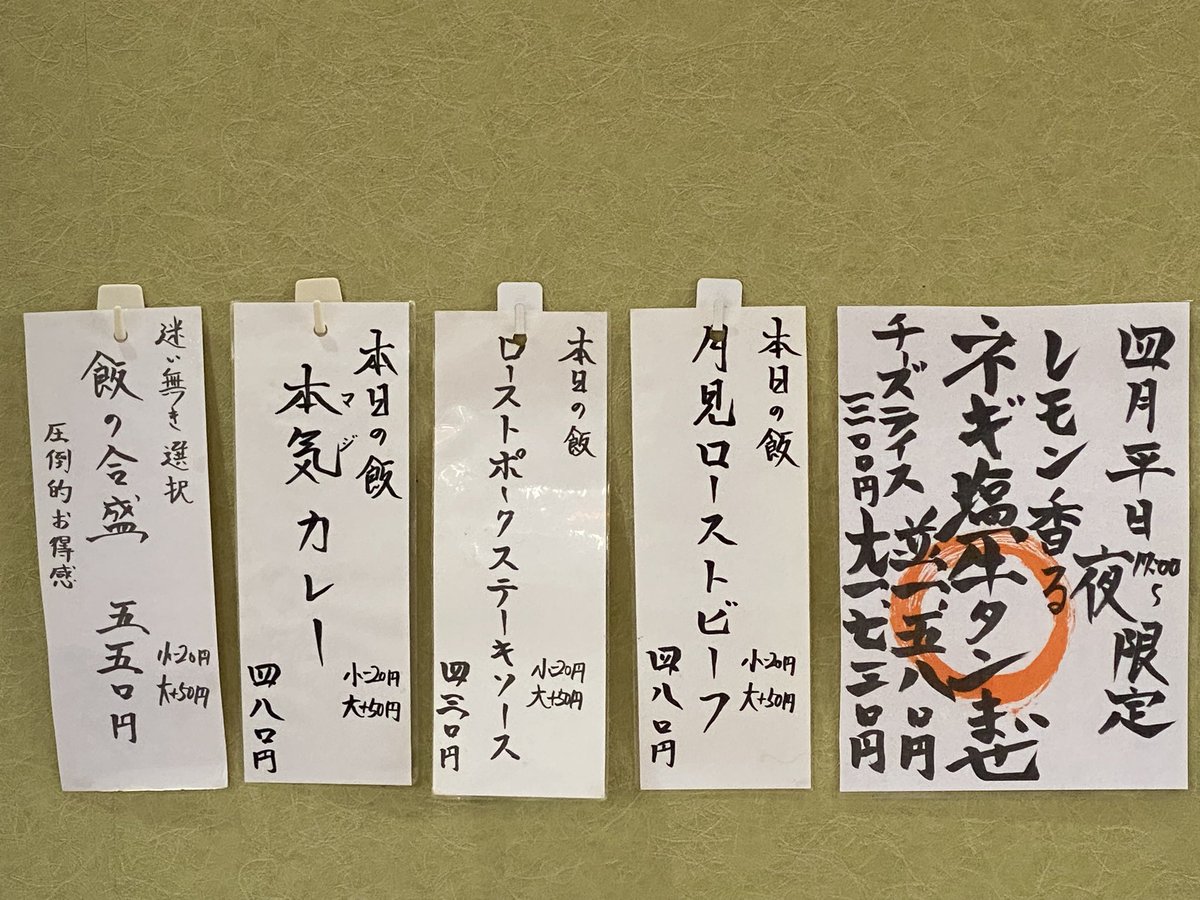 四月平日夜限定
17:00〜
レモン香る
ネギ塩牛タンまぜ
並一、五八〇円
大一、七三〇円
チーズライス
三〇〇円
本日の飯
月見ローストビーフ
小-20円
大+50円
四八〇円
本日の飯
ローストポークステーキソース
小-20円
大+50円
四三〇円
本日の飯
本気カレー
マジ
小-20円
大+50円
四八〇円
迷い無き選択
飯の合盛 五五〇円
小-20円
大+50円
圧倒的お得感